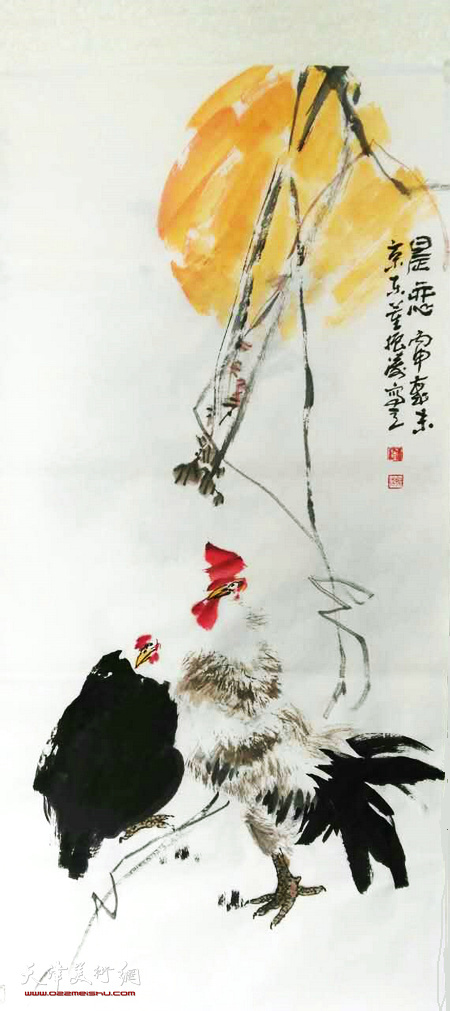 晨恋 丙申岁末
京东董振涛写之
天津美術網
www.022meishu.com